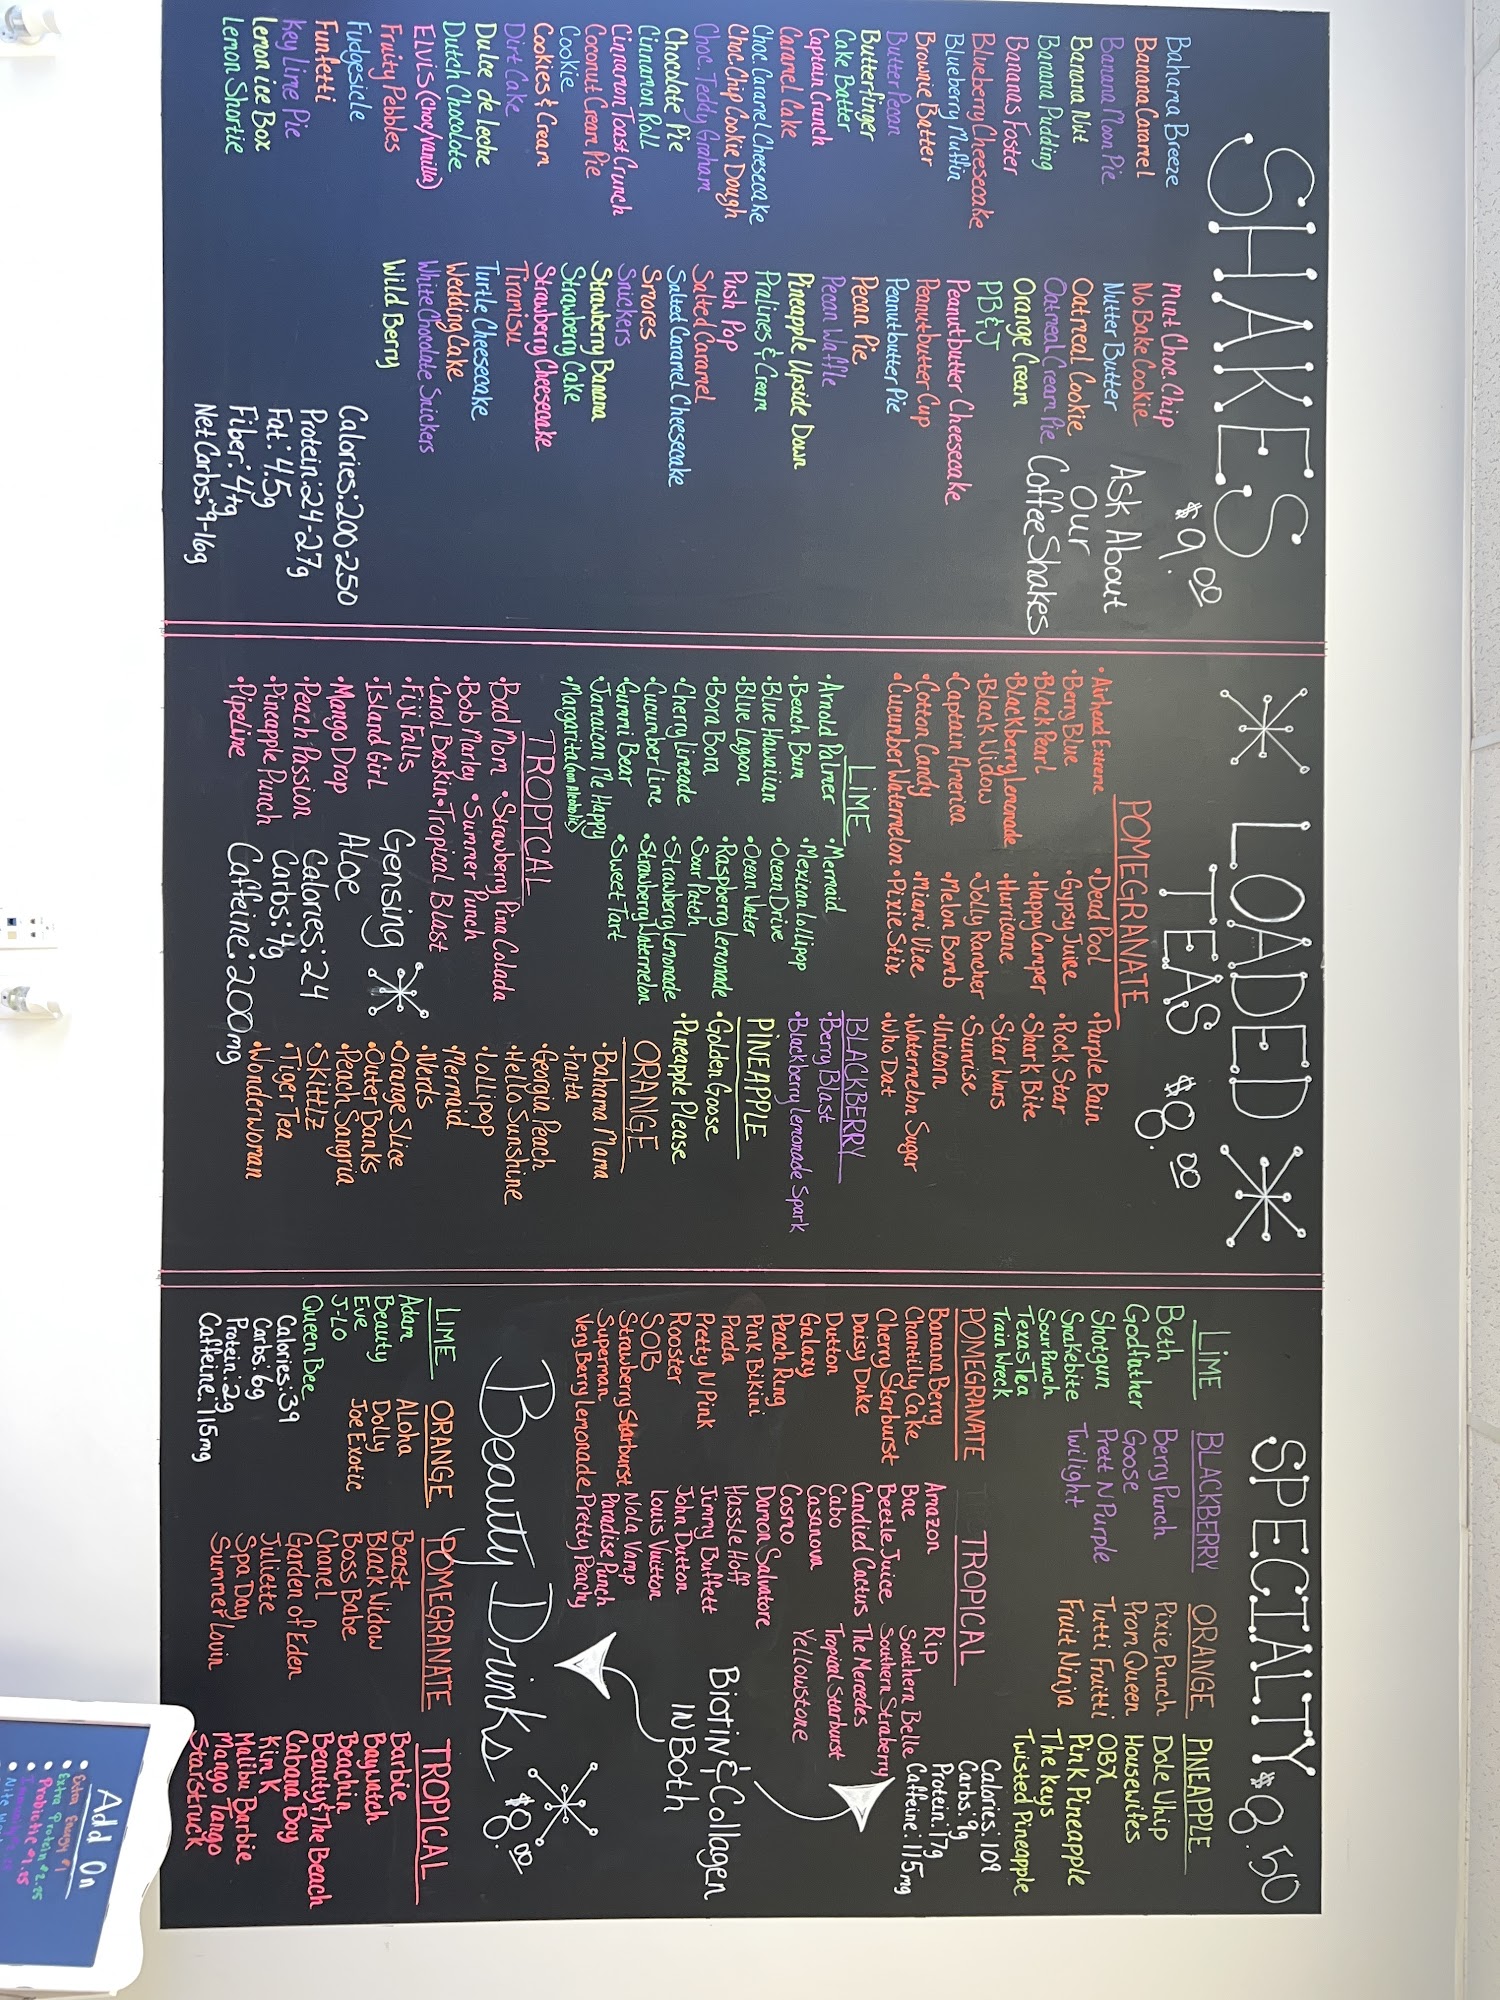 SHAKES
$9.00
Bahama Breeze
Banana Caramel
Banana Moon Pie
Banana Nut
Banana Pudding
Bananas Foster
Blueberry Cheesecake
Blueberry Muffin
Brownie Butter
Butter Pecan
Butterfinger
Cake Batter
Captain Crunch
Caramel Cake
Choc. Caramel Cheesecake
Choc. Chip Cookie Dough
Choc. Teddy Graham
Chocolate Pie
Cinnamon Roll
Cinnamon Toast Crunch
Coconut Cream Pie
Cookie
Cookies & Cream
Dirt Cake
Dulce de Leche
Dutch Chocolate
Elvis (Choc/Vanilla)
Fruity Pebbles
Fudgesicle
Funfetti
Key Lime Pie
Lemon ice Box
Lemon Shortie
Mint Choc. Chip
No Bake Cookie
Nutter Butter
Oatmeal Cookie
Oatmeal Cream Pie
Orange Cream
PB & J
Peanutbutter Cheesecake
Peanutbutter Cup
Peanutbutter Pie
Pecan Pie
Pecan Waffle
Pineapple Upside Down
Pralines & Cream
Push Pop
Salted Caramel
Salted Caramel Cheesecake
Smores
Snickers
Strawberry Banana
Strawberry Cake
Strawberry Cheesecake
Tiramisu
Turtle Cheesecake
Wedding Cake
White Chocolate Snickers
Wild Berry
Ask About
Our
Coffee Shakes
Calories: 200-250
Protein: 24-27g
Fat: 4.5g
Fiber: 4g
Net Carbs: 9-16g
LOADED
TEAS $8.00
POMEGRANATE
• Airhead Extreme
• Berry Blue
• Black Pearl
• Blackberry Lemonade
• Black Widow
• Captain America
• Cotton Candy
• Cucumber Watermelon
• Dead Pool
• Gypsy Juice
• Happy Camper
• Hurricane
• Jolly Rancher
• Melon Bomb
• Miami Vice
• Pixie Stix
• Purple Rain
• Rock Star
• Shark Bite
• Star Wars
• Sunrise
• Unicorn
• Watermelon Sugar
• Who Dat
LIME
• Arnold Palmer
• Beach Bum
• Blue Hawaiian
• Blue Lagoon
• Bora Bora
• Cherry Limeade
• Cucumber Lime
• Gummi Bear
• Jamaican Me Happy
• Margarita (non Alcoholic)
• Mermaid
• Mexican Lollipop
• Ocean Drive
• Ocean Water
• Raspberry Lemonade
• Sour Patch
• Strawberry Lemonade
• Strawberry Watermelon
• Sweet Tart
BLACKBERRY
• Berry Blast
• Blackberry Lemonade Spark
PINEAPPLE
• Golden Goose
• Pineapple Please
TROPICAL
• Bad Mom
• Bob Marley
• Carol Baskin
• Fiji Falls
• Island Girl
• Mango Drop
• Peach Passion
• Pineapple Punch
• Pipeline
• Strawberry Pina Colada
• Summer Punch
• Tropical Blast
ORANGE
• Bahama Mama
• Fanta
• Georgia Peach
• Hello Sunshine
• Lollipop
• Mermaid
• Nerds
• Orange Slice
• Outer Banks
• Peach Sangria
• Skittlz
• Tiger Tea
• Wonderwoman
Gensing
Aloe
Calories: 24
Carbs: 4g
Caffeine: 200mg
SPECIALTY $8.50
LIME
Beth
Godfather
Shotgun
Snakebite
Sour Punch
Texas Tea
Train Wreck
BLACKBERRY
Berry Punch
Goose
Prett N Purple
Twilight
ORANGE
Pixie Punch
Prom Queen
Tutti Fruitti
Fruit Ninja
PINEAPPLE
Dole Whip
Housewifes
OBX
Pink Pineapple
The Keys
Twisted Pineapple
POMEGRANATE
Banana Berry
Chantilly Cake
Cherry Starburst
Daisy Duke
Dutton
Galaxy
Peach Ring
Pink Bikini
Prada
Pretty N Pink
Rooster
SOB
Strawberry Starburst
Superman
Very Berry Lemonade
TROPICAL
Amazon
Bae
Beetle Juice
Candied Cactus
Cabo
Casanova
Cosmo
Damon Salvatore
Hassle Hoff
Jimmy Buffett
John Dutton
Louis Vuitton
Nola Vamp
Paradise Punch
Pretty Peachy
Rip
Southern Belle
Southern Straberry
The Mercedes
Tropical Starburst
Yellowstone
Calories: 109
Carbs: 9g
Protein: 17g
Caffeine: 115mg
Biotin & Collagen
IN Both
Beauty Drinks $8.00
LIME
Adam
Beauty
Eve
J-LO
Queen Bee
ORANGE
Aloha
Dolly
Joe Exotic
POMEGRANATE
Beast
Black Widow
Boss Babe
Chanel
Garden of Eden
Juliette
Spa Day
Summer Lovin
TROPICAL
Barbie
Baywatch
Beachin
Beauty & The Beach
Cabana Boy
Kim K
Malibu Barbie
Mango Tango
Starstruck
Calories: 39
Carbs: 6g
Protein: 2g
Caffeine: 115mg
Add On
• Extra Energy $1
• Extra Protein $2.25
• Probiotic $1.25